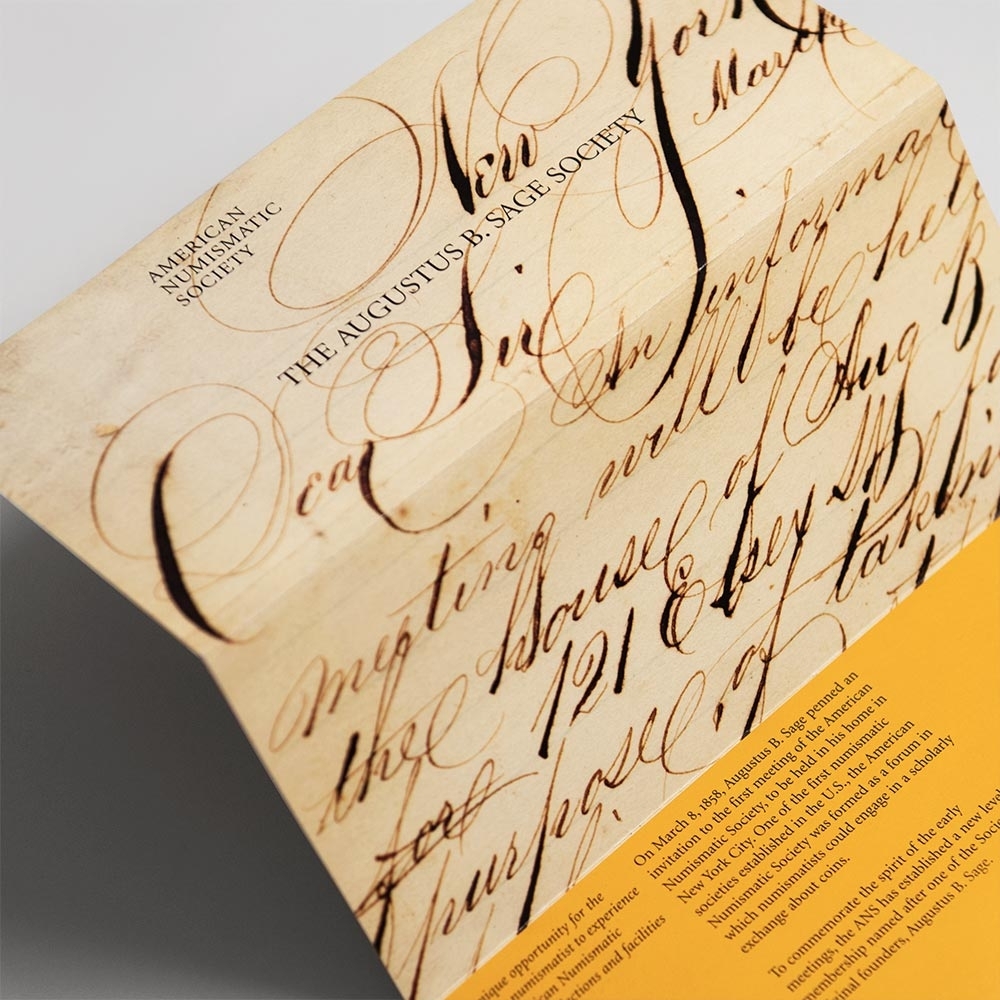 New York
March
AMERICAN
NUMISMATIC
SOCIETY
THE AUGUSTUS B. SAGE SOCIETY
Dear Sir
An informa
meeting will be hel
the house of Aug B
121 Essex St
for
purpose of takin
On March 8, 1858, Augustus B. Sage penned an
invitation to the first meeting of the American
Numismatic Society, to be held in his home in
New York City. One of the first numismatic
societies established in the U.S., the American
Numismatic Society was formed as a forum in
which numismatists could engage in a scholarly
exchange about coins.
To commemorate the spirit of the early
meetings, the ANS has established a new level
membership named after one of the Soci
inal founders, Augustus B. Sage.
nique opportunity for the
numismatist to experience
rican Numismatic
ctions and facilities